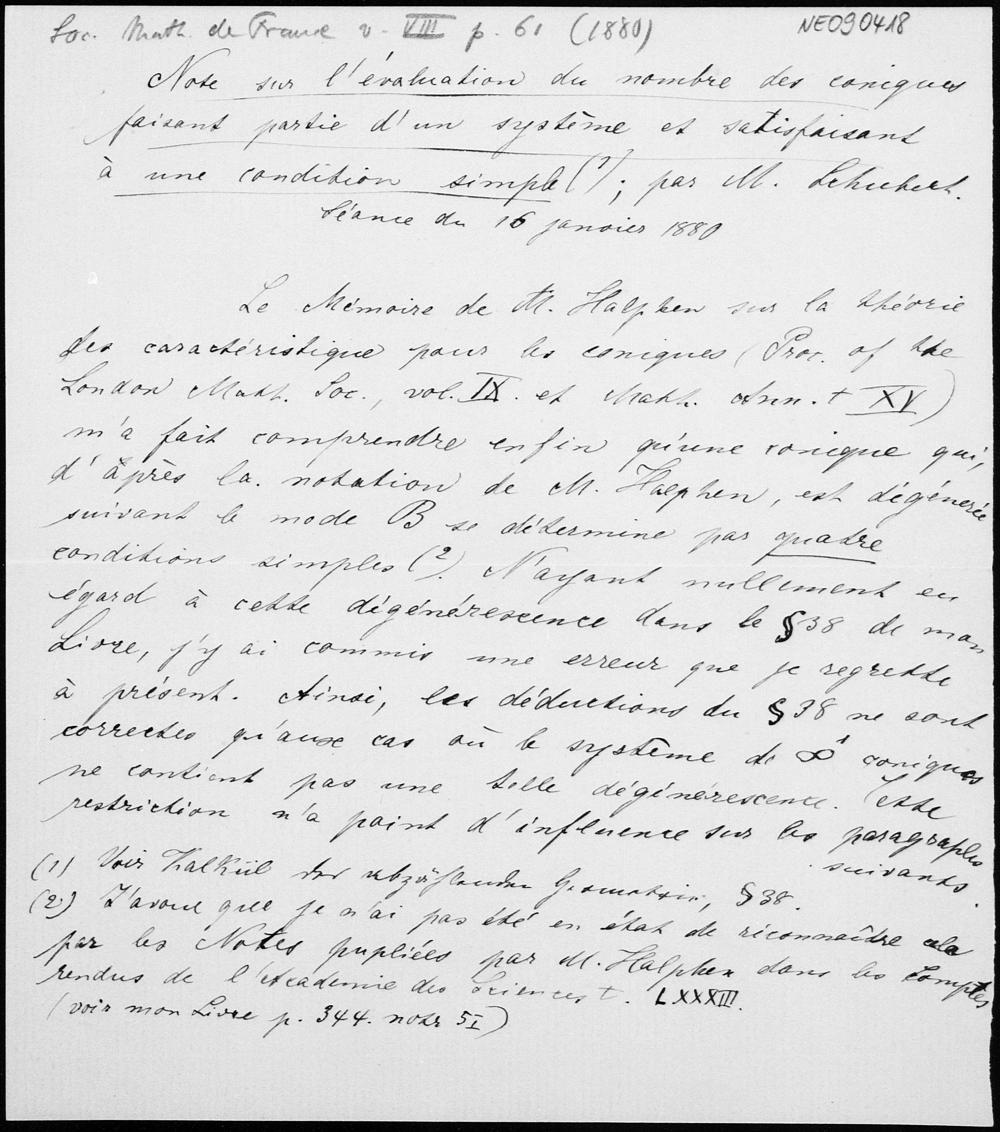 Soc. Math. de France v. VIII p. 61 (1880)
NE090418
Note sur l'évaluation du nombre des coniques
faisant partie d'un système et satisfaisant
à une condition simple (1); par M. Schubert.
Séance du 16 janvier 1880
Le Mémoire de M. Halphen sur la théorie
des caractéristique pour les coniques (Proc. of the
London Math. Soc., vol. IX. et Math. Ann. t XV)
m'a fait comprendre enfin qu'une conique qui,
d'après la notation de M. Halphen, est dégénerée
suivant le mode B se détermine par quatre
conditions simples (2). N'ayant nullement eu
égard à cette dégénérescence dans le § 38 de mon
Livre, j'y ai commis une erreur que je regrette
à présent. Ainsi, les déductions du § 38 ne sont
correctes qu'aux cas où le système de ∞¹ coniques
ne contient pas une telle dégénérescence. Cette
restriction n'a point d'influence sur les paragraphes
suivants.
(1) Voir Kalkül der abzählenden Geometrie, § 38.
(2) J'avoue que je n'ai pas été en état de riconnaître cela
par les Notes pupliées par M. Halphen dans les Comptes
rendus de l'Academie des Sciences t. LXXXIII.
(voir mon Livre p. 344. note 51)